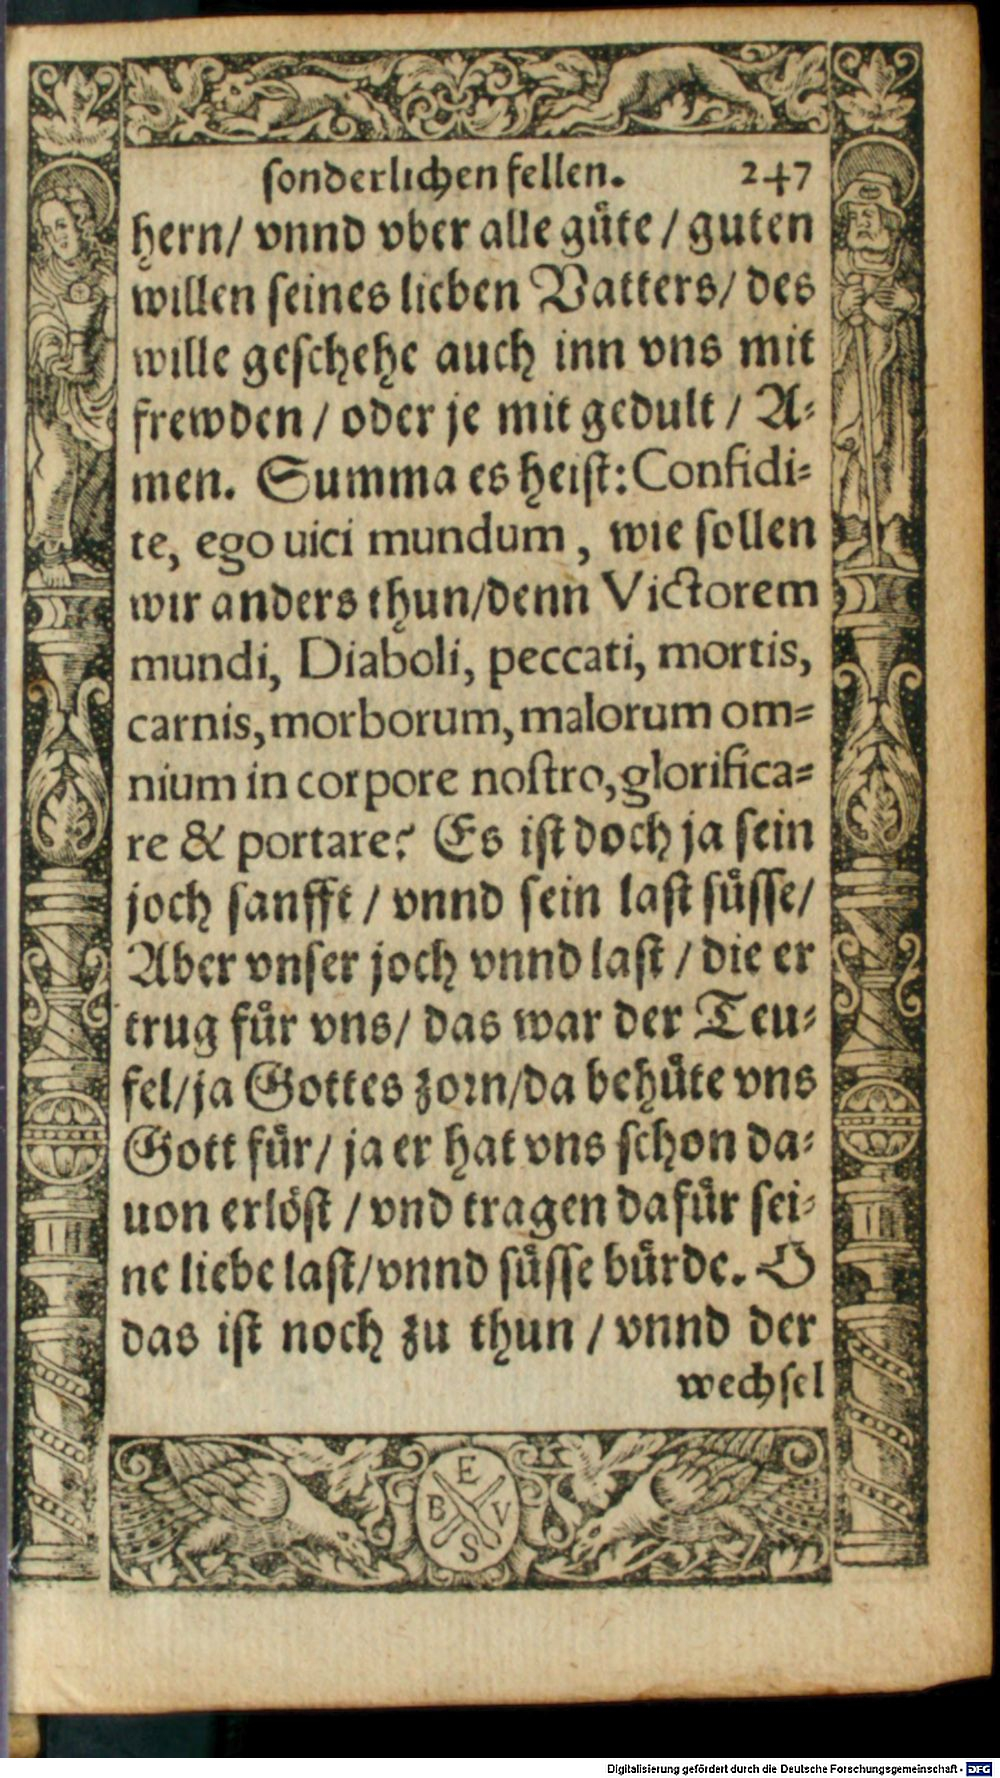 sonderlichen fellen. 247
hern/ vnnd vber alle gůte / guten
willen seines lieben Vatters/ des
wille geschehe auch inn vns mit
frewden / oder je mit gedult / A⸗
men. Summa es heist: Confidi⸗
te, ego uici mundum, wie sollen
wir anders thun/denn Victorem
mundi, Diaboli, peccati, mortis,
carnis, morborum, malorum om⸗
nium in corpore nostro, glorifica⸗
re & portare? Es ist doch ja sein
joch sanfft / vnnd sein last sůsse/
Aber vnser joch vnnd last / die er
trug fůr vns/ das war der Teu⸗
fel/ja Gottes zorn/da behůte vns
Gott fůr/ ja er hat vns schon da⸗
uon erlöst / vnd tragen dafůr sei⸗
ne liebe last/vnnd sůsse bůrde. O
das ist noch zu thun / vnnd der
wechsel
E
B V
S
Digitalisierung gefördert durch die Deutsche Forschungsgemeinschaft - DFG